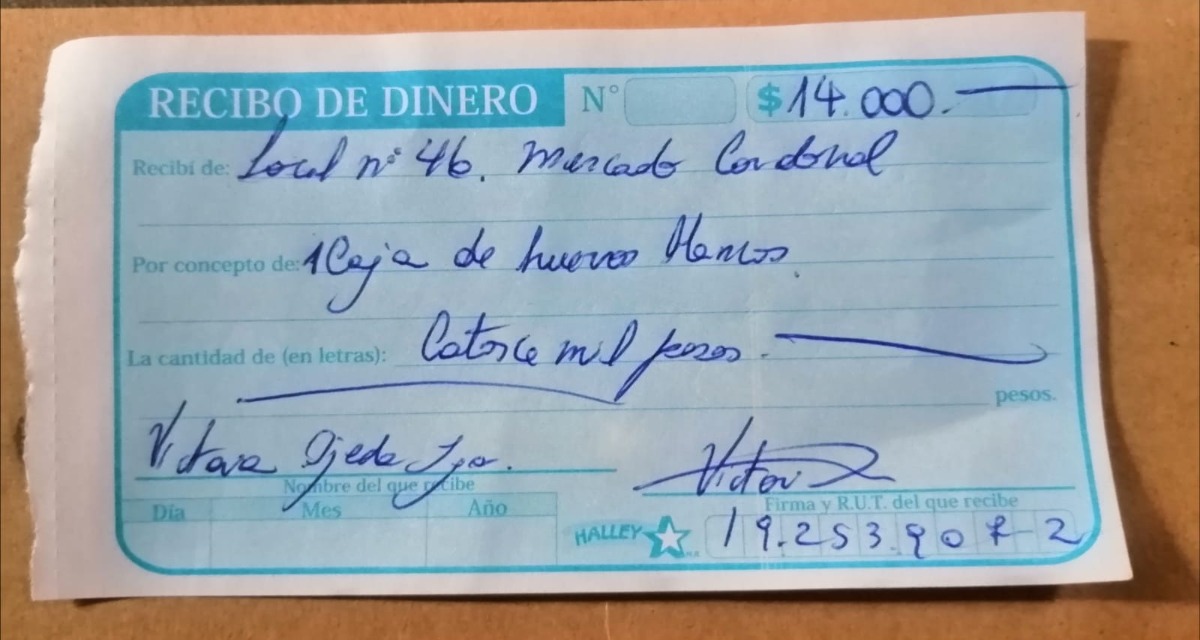 RECIBO DE DINERO N° $ 14.000.
Recibí de: Local n° 46. Mercado Cardonal
Por concepto de: 1 Caja de huevos blancos.
La cantidad de (en letras): Catorce mil pesos.
pesos.
Ojeda
Nombre del que recibe
Firma y R.U.T. del que recibe
Día Mes Año
HALLEY 19.253.907-2